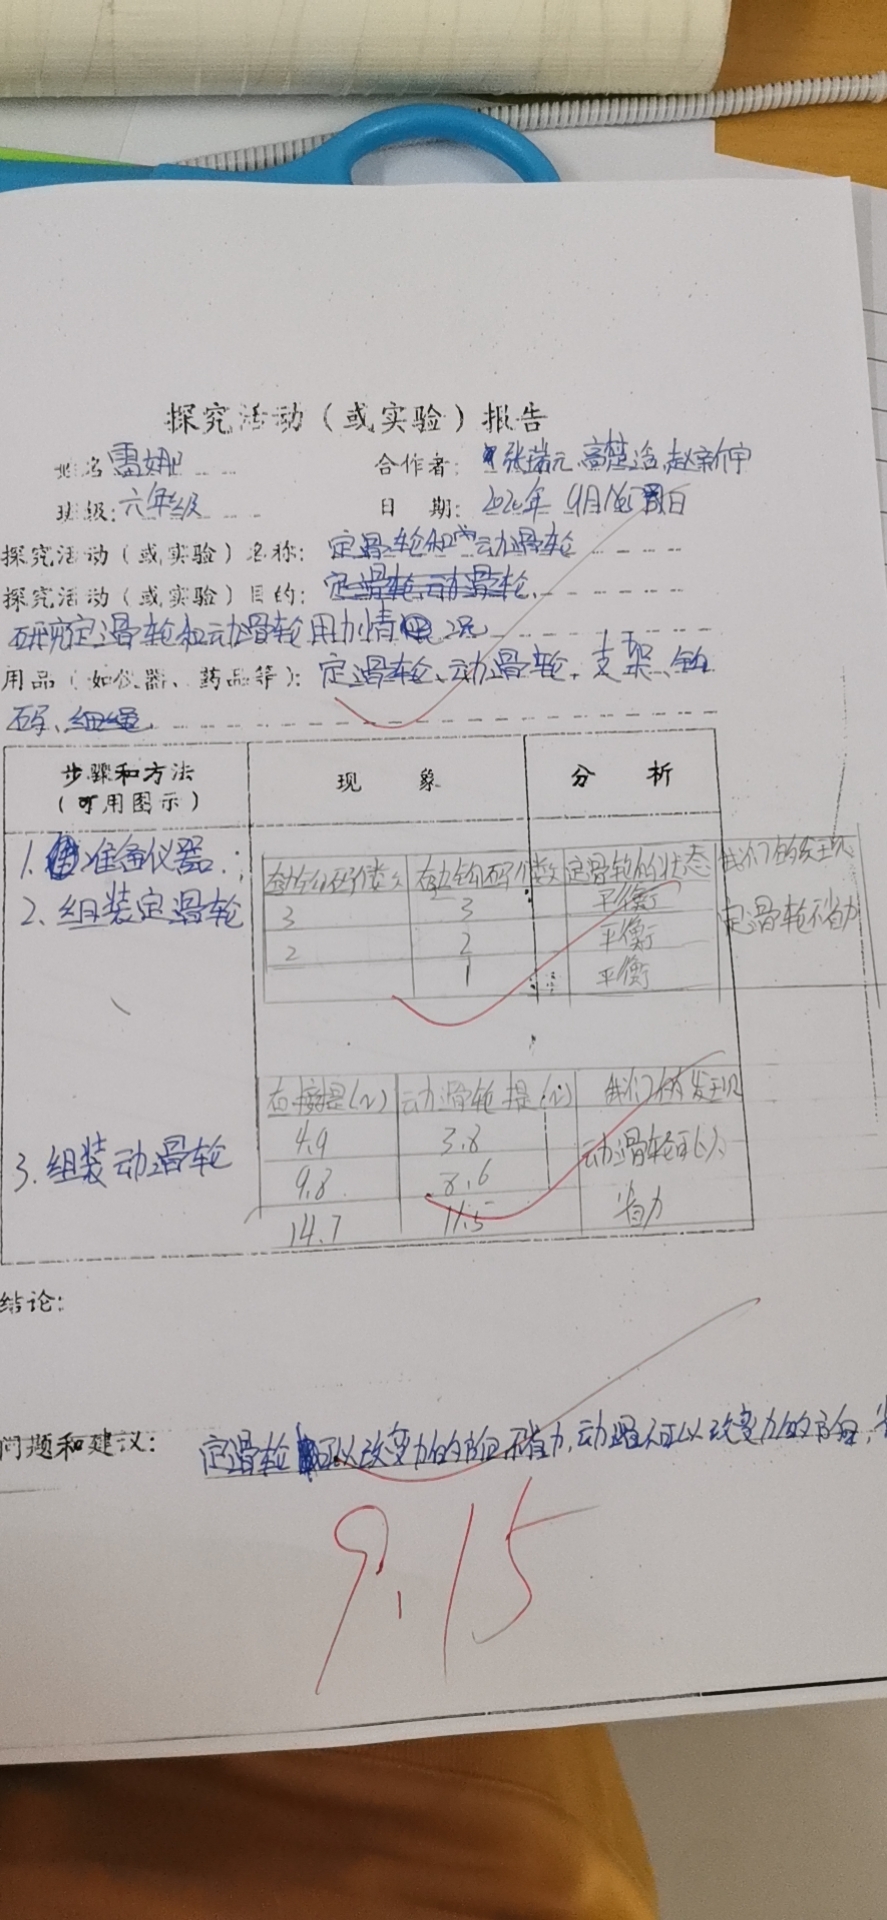 探究活动（或实验）报告
姓名 雷娜 合作者：张瑞元、高楚涵、赵新宇
班级：六年级 日 期：2020年 9月 日
探究活动（或实验）名称：定滑轮和动滑轮
探究活动（或实验）目的：定滑轮、动滑轮
研究定滑轮和动滑轮用力情况
用品（如仪器、药品等）：定滑轮、动滑轮、支架、钩
码、细绳
步骤和方法（可用图示） 现 象 分 析
1. 准备仪器；
左钩码个数 右钩码个数 定滑轮的状态 我们的发现
2. 组装定滑轮
3 3 平衡 定滑轮不省力
2 2 平衡
1 平衡
直接提(N) 动滑轮提(N) 我们的发现
4.9 3.8 动滑轮可以
3. 组装动滑轮
9.8 8.6 省力
14.7 11.5
结论：
问题和建议：定滑轮可以改变力的方向不省力，动滑不可以改变力的方向，省
9.15